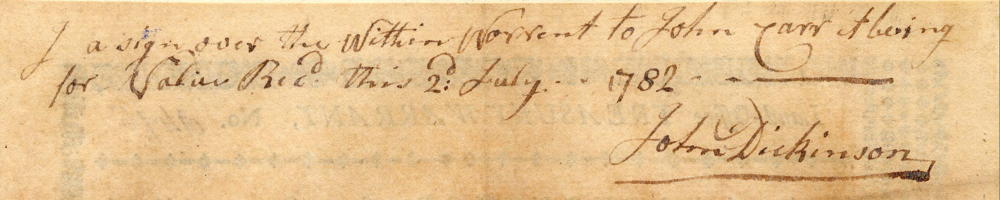 I a sign over the Within Worrent to John Carr it being
for Value Rec.d this 2.d July - - 1782 - -
John Dickinson